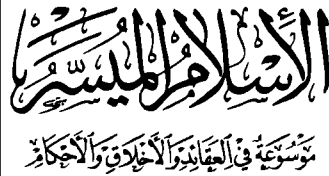 الإِسْلَامُ المُيَسَّرُ
مَوْسُوعَةٌ فِي الْعَقَائِدِ وَالْأَخْلَاقِ وَالْأَحْكَامِ